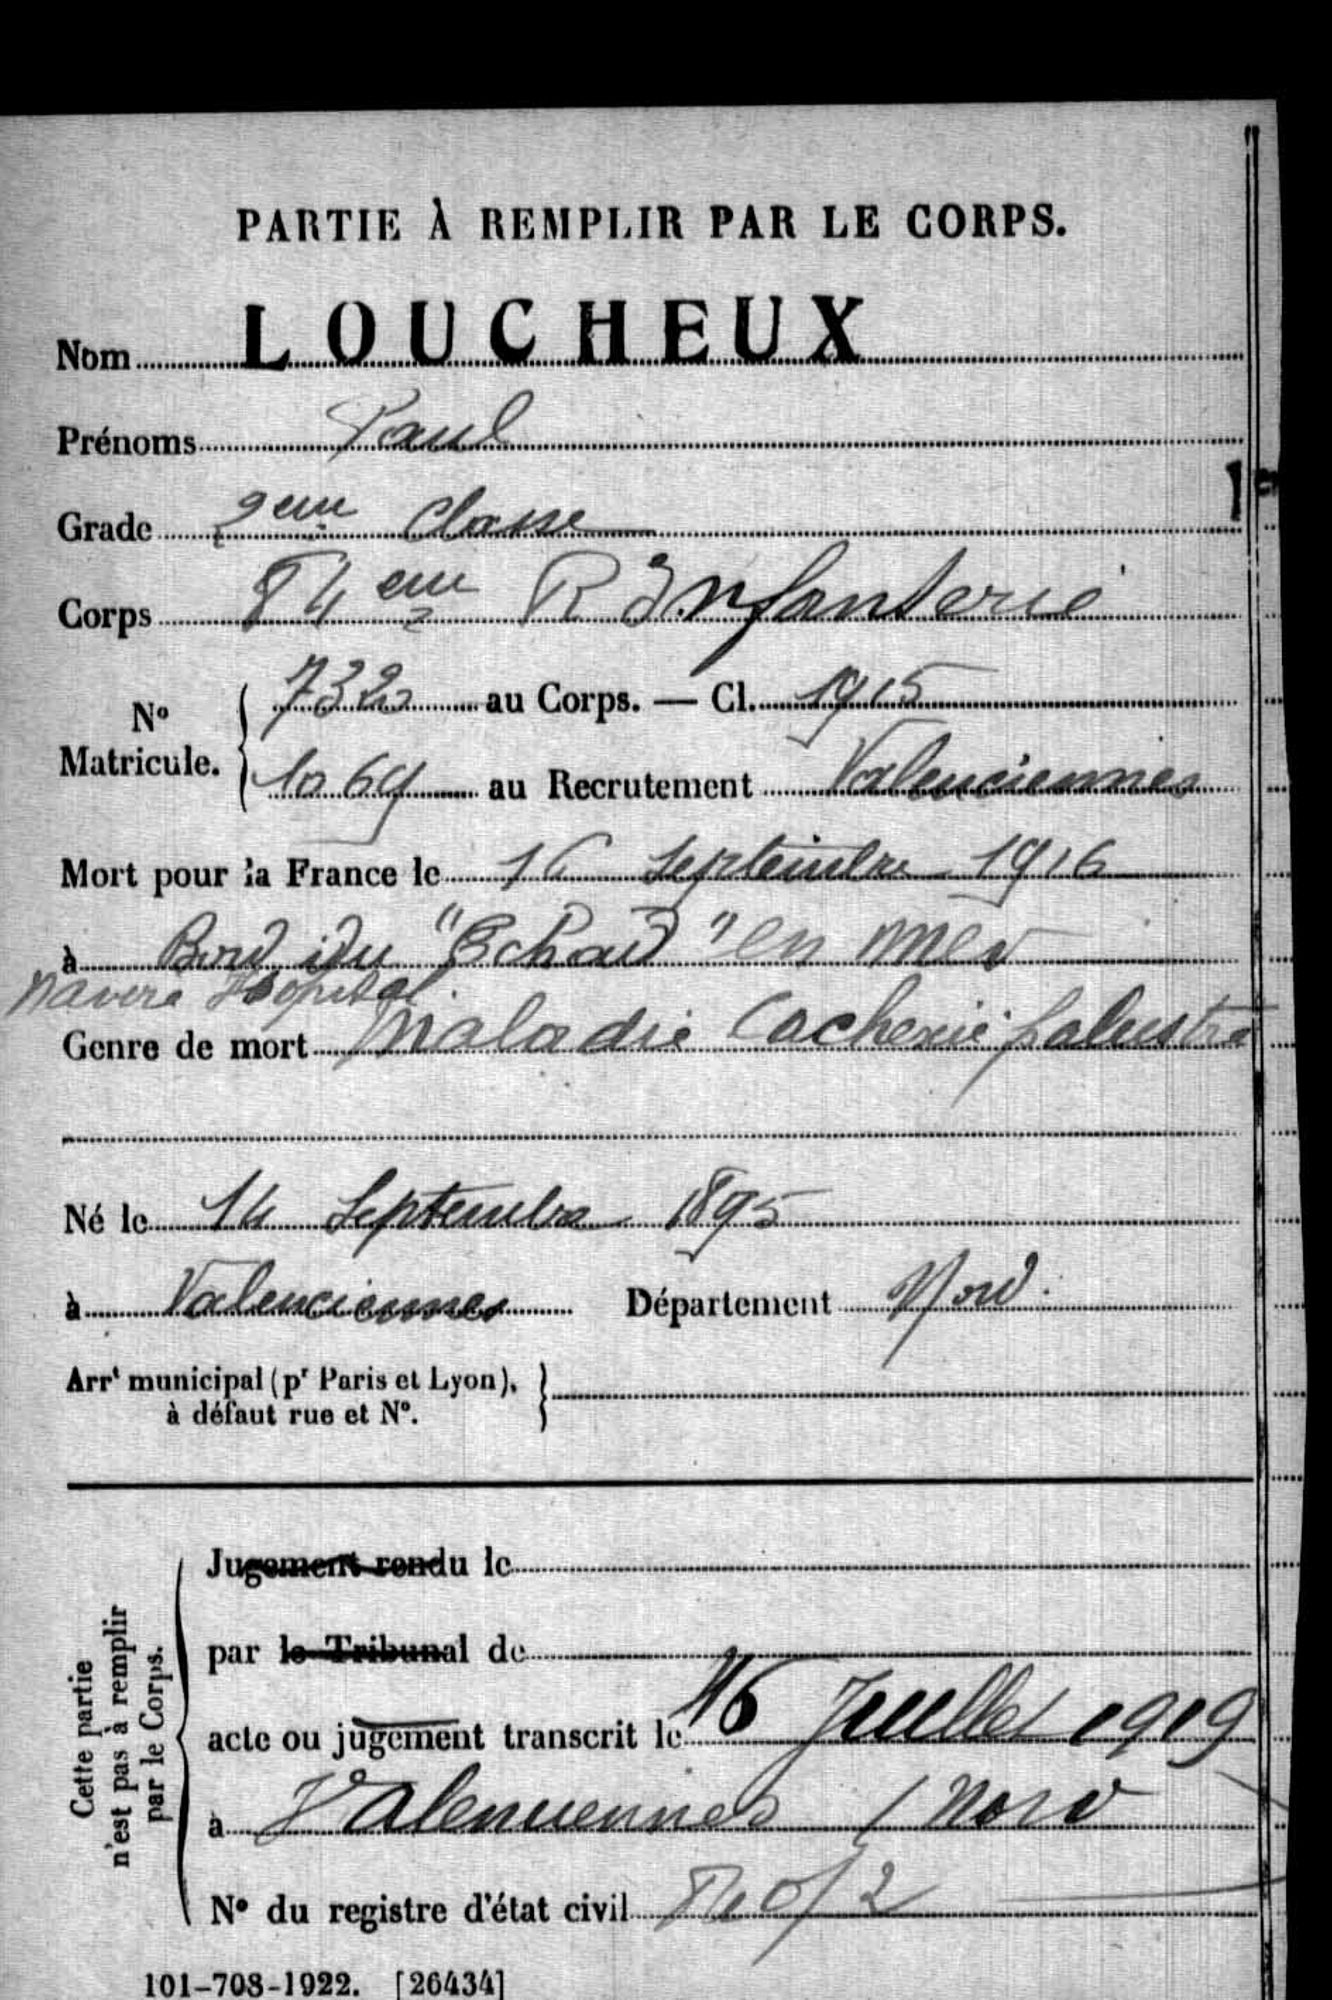 PARTIE À REMPLIR PAR LE CORPS.
Nom LOUCHEUX
Prénoms Paul
Grade 2eme Classe
Corps 84eme R Infanterie
N° Matricule. 7320 au Corps. — Cl. 1915
1069 au Recrutement Valenciennes
Mort pour la France le 16 Septembre 1916
à Bord du " " en mer
navire Hopital.
Genre de mort Maladie Cachexie palustre
Né le 14 Septembre 1895
à Valenciennes Département Nord.
Arrt municipal (pr Paris et Lyon),
à défaut rue et N°.
Cette partie
n'est pas à remplir
par le Corps.
Jugement rendu le
par le Tribunal de
acte ou jugement transcrit le 16 Juillet 1919
à Valenciennes / Nord
N° du registre d'état civil
101-708-1922. [26434]